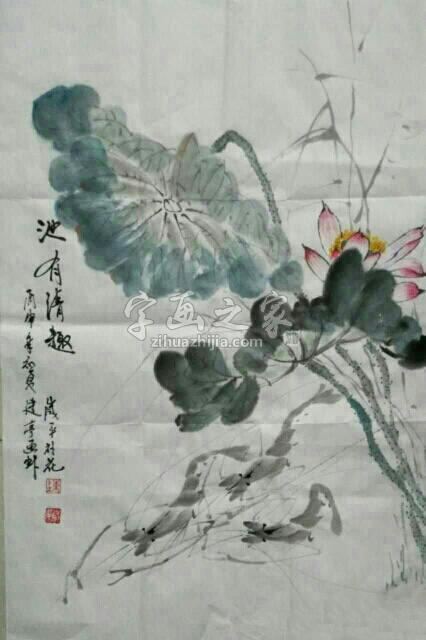 池有清趣
丙申年初夏建亭画虾
字画之家
zihuazhijia.com